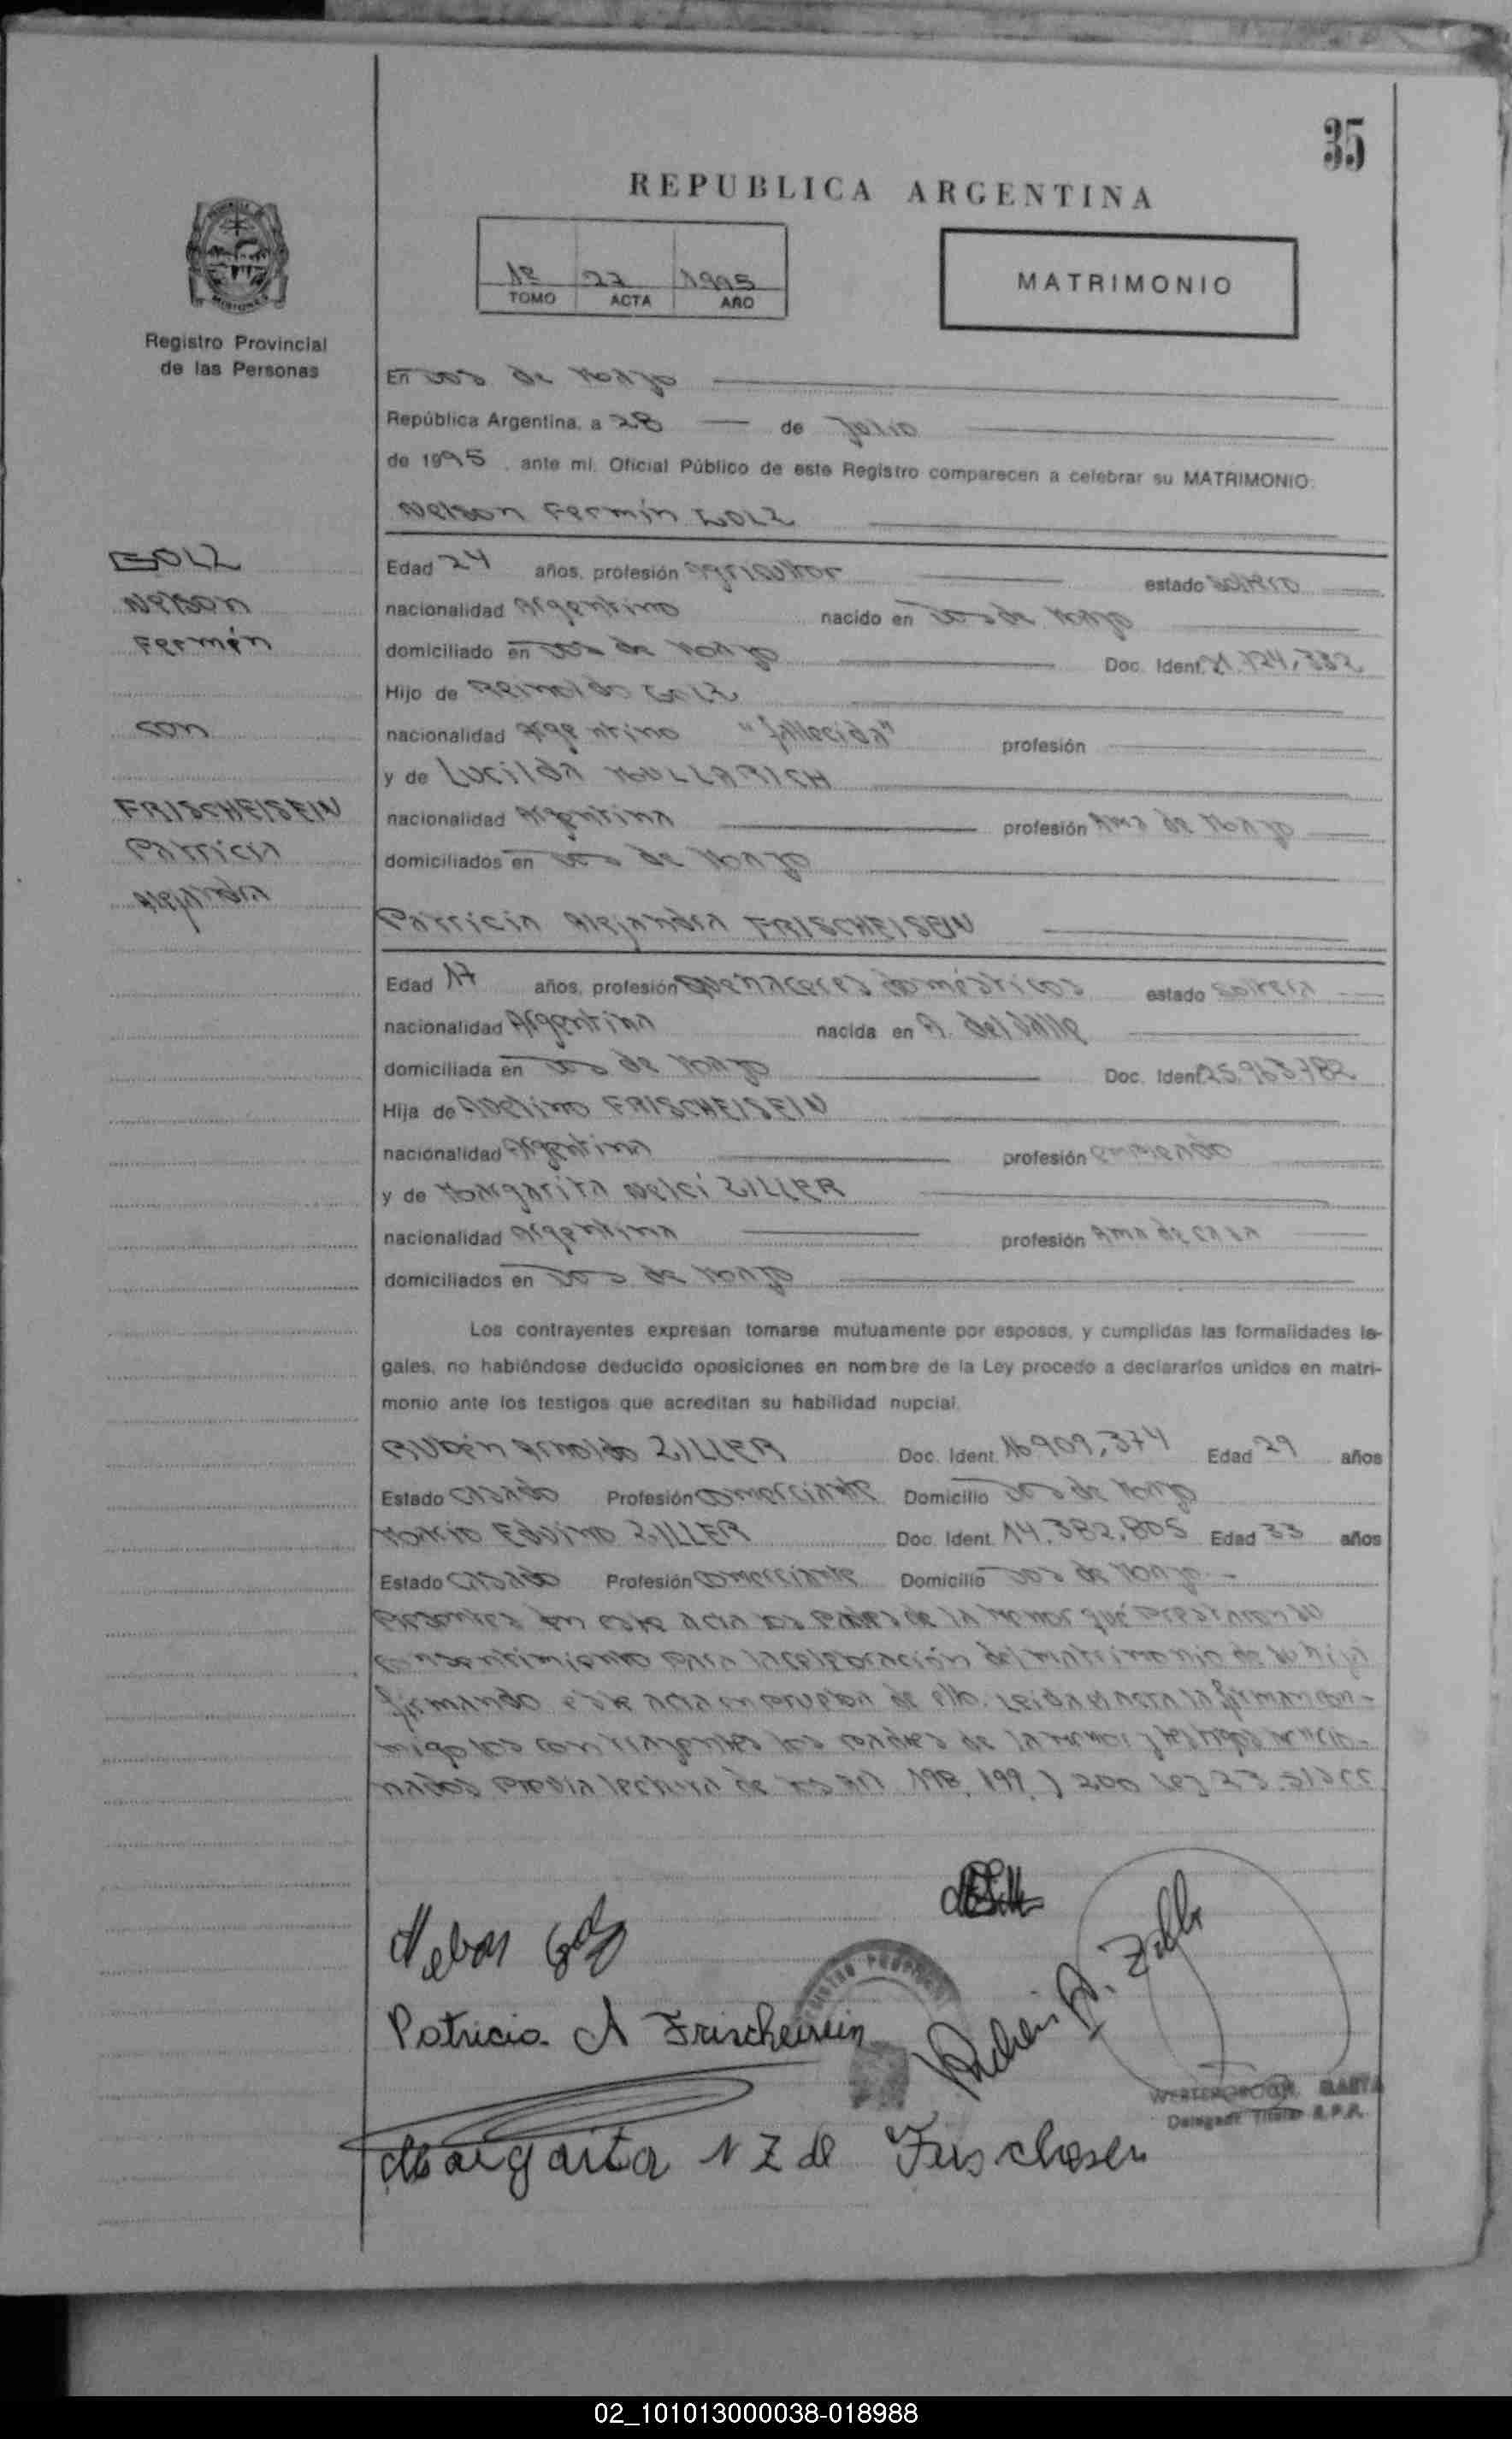 35
REPUBLICA ARGENTINA
1º 27 1995
TOMO ACTA AÑO
MATRIMONIO
Registro Provincial
de las Personas
En Dos de Mayo
República Argentina, a 28 de Julio
de 1995, ante mí, Oficial Público de este Registro comparecen a celebrar su MATRIMONIO:
Nelson Fermín GOLZ
GOLZ
Nelson
Fermín
con
FRISCHEISEIN
Patricia
Alejandra
Edad 24 años, profesión agricultor estado soltero
nacionalidad Argentino nacido en Dos de Mayo
domiciliado en Dos de Mayo Doc. Ident. 21.724.332
Hijo de Reinoldo GOLZ
nacionalidad Argentino "fallecido" profesión
y de Lucilda
nacionalidad Argentina profesión Ama de
domiciliados en Dos de Mayo
Patricia Alejandra FRISCHEISEIN
Edad 17 años, profesión Quehaceres domésticos estado soltera
nacionalidad Argentina nacida en A. del Valle
domiciliada en Dos de Mayo Doc. Ident. 25.963.782
Hija de Avelino FRISCHEISEIN
nacionalidad Argentina profesión empleado
y de Margarita Nelci ZILLER
nacionalidad Argentina profesión Ama de casa
domiciliados en Dos de Mayo
Los contrayentes expresan tomarse mutuamente por esposos, y cumplidas las formalidades le-
gales, no habiéndose deducido oposiciones en nombre de la Ley procedo a declararlos unidos en matri-
monio ante los testigos que acreditan su habilidad nupcial.
Rubén Arnoldo ZILLER Doc. Ident. 16.909.374 Edad 29 años
Estado casado Profesión comerciante Domicilio Dos de Mayo
Mario Edvino ZILLER Doc. Ident. 14.382.805 Edad 33 años
Estado casado Profesión comerciante Domicilio Dos de Mayo
Presentes en este acta los padres de la menor que prestaron su
consentimiento para la celebración del matrimonio de su hija
firmando este acta en prueba de ello. Leida el acta la firman con-
migo los contrayentes los padres de la menor y testigos mencio-
nados previa lectura de los Art 198, 199 y 200 ley 23.515 CC
Nelson Golz
Patricia A Frischeisein
Ruben A. Ziller
MARTA
Delegada Titular R.P.P.
Margarita N Z de Frischesen
02_101013000038-018988